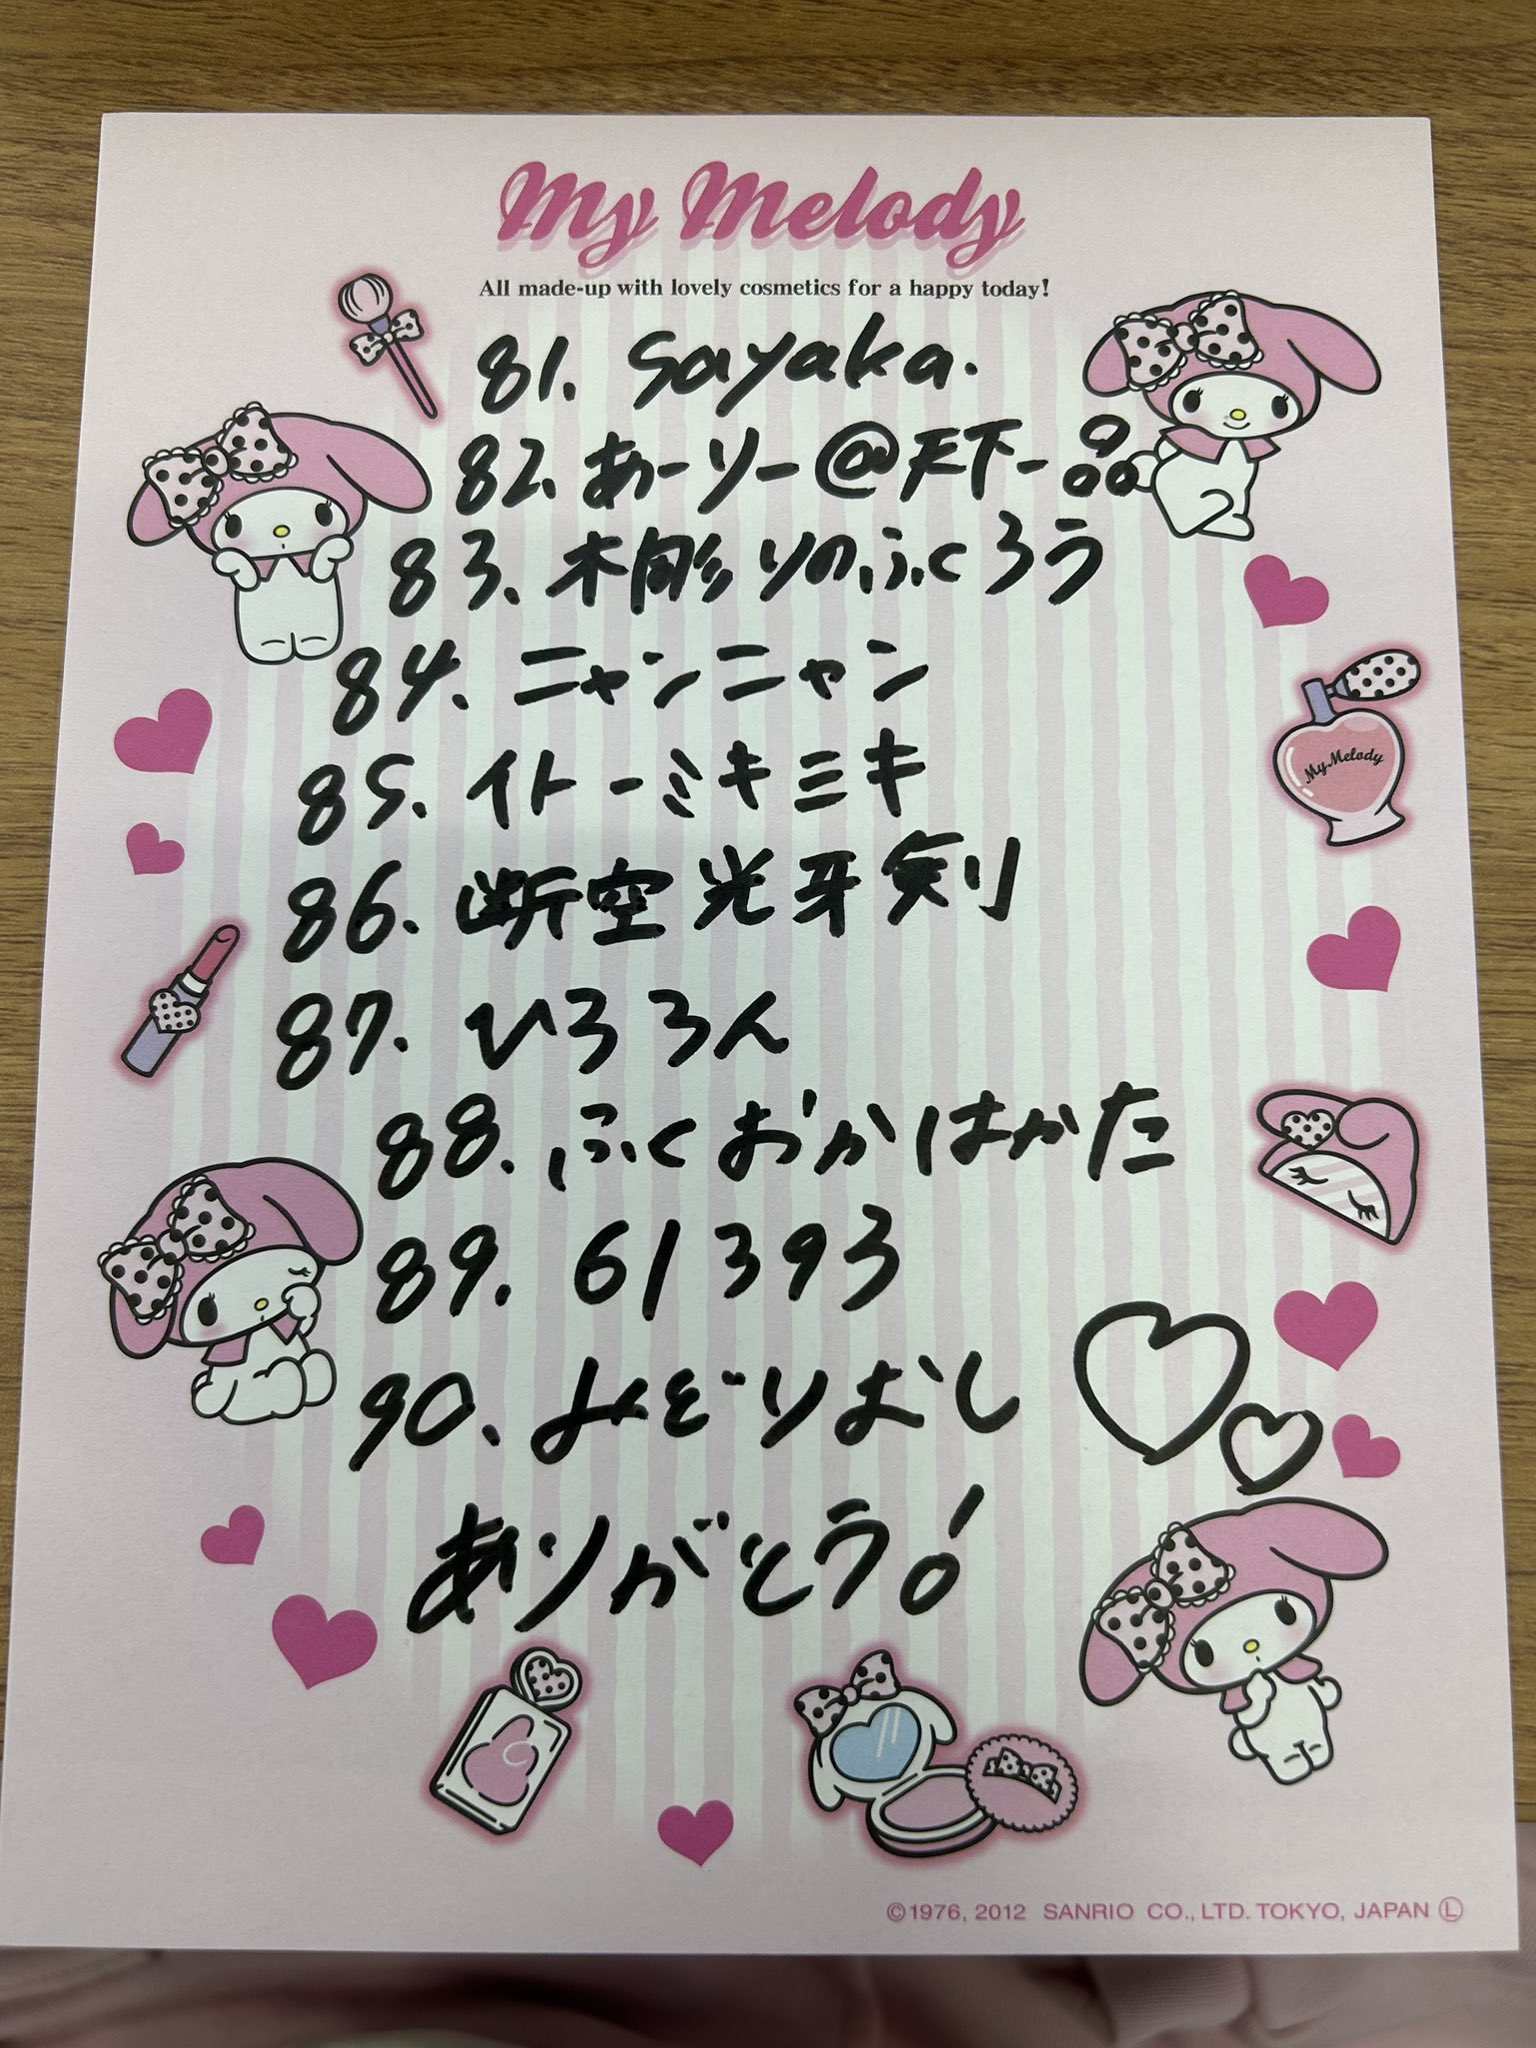 My Melody
All made-up with lovely cosmetics for a happy today!
81. Sayaka.
82. あーりー@天下一品
83. 木彫りのふくろう
84. ニャンニャン
85. イトーミキミキ
86. 断空光牙剣
87. ひろろん
88. ふくおかはかた
89. 61393
90. みどりおし
ありがとう!
My Melody
©1976, 2012 SANRIO CO., LTD. TOKYO, JAPAN Ⓛ